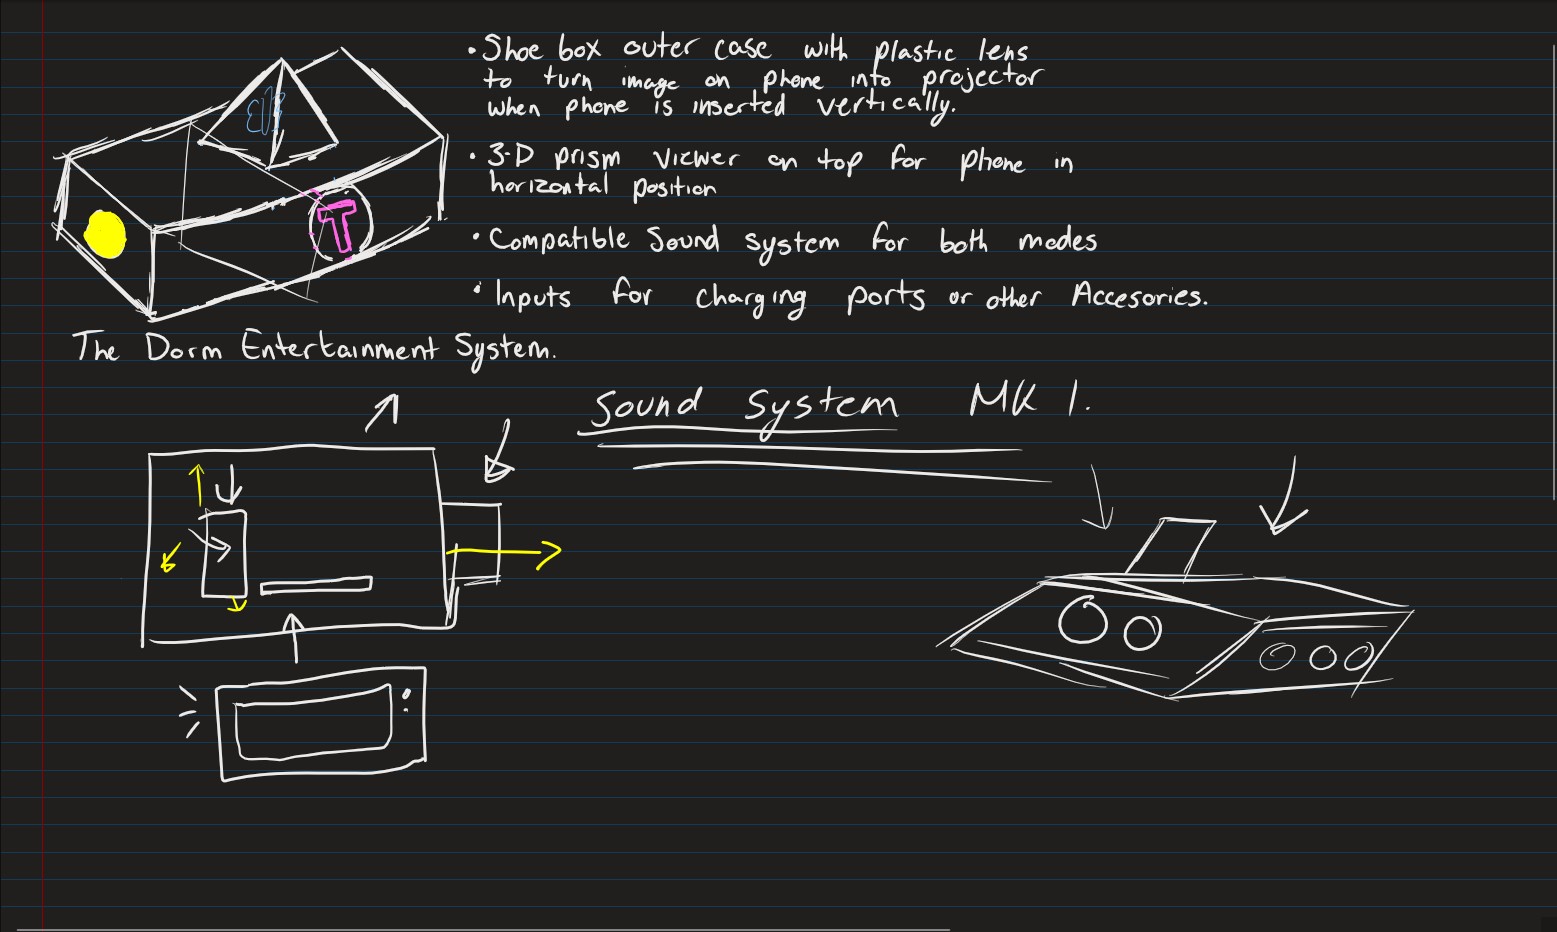 • Shoe box outer case with plastic lens
to turn image on phone into projector
when phone is inserted vertically.
• 3-D prism viewer on top for phone in
horizontal position
• Compatible Sound system for both modes
• Inputs for charging ports or other Accesories.
T
The Dorm Entertainment System.
Sound System MK 1.